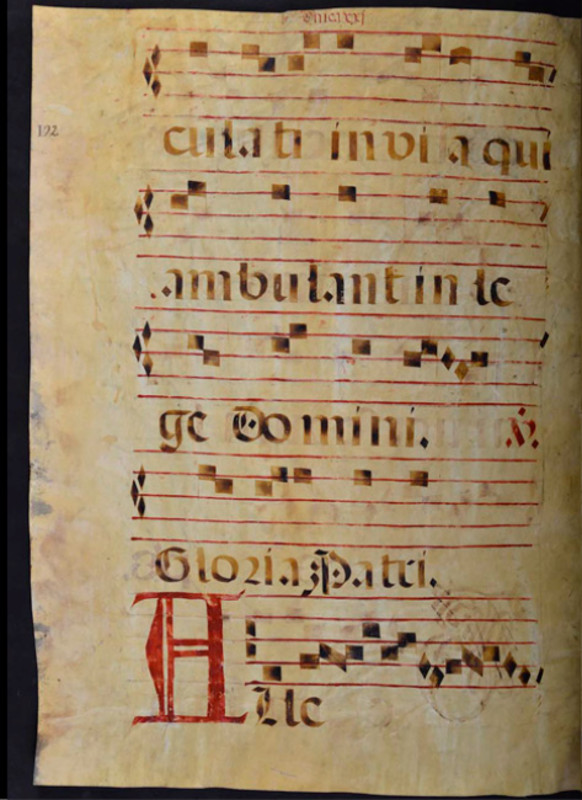 192
culati in via qui
ambulant in le
ge Domini. ℣.
Gloria Patri.
Alle